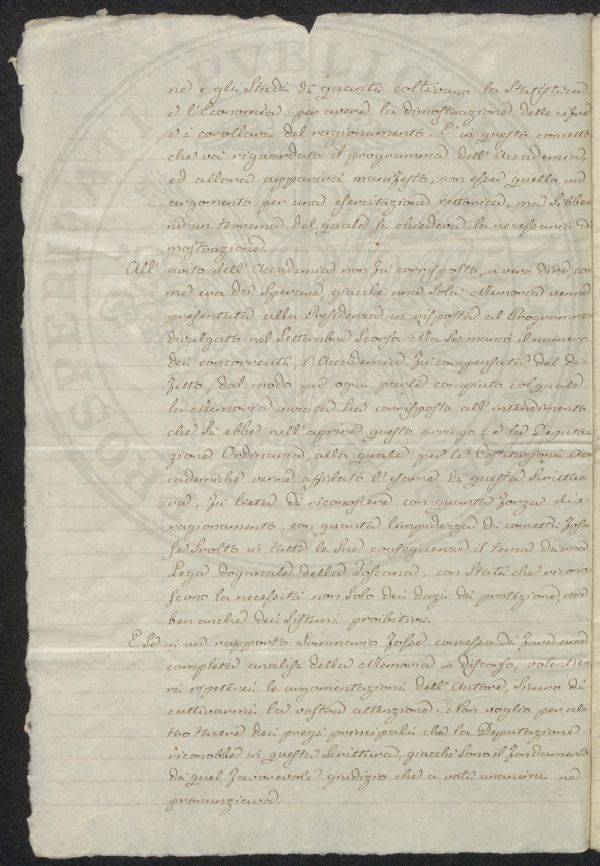 ne e gli Studi di quanti coltivano la Statistica
e l'Economia, per avere la dimostrazione delle cifre
e i corollari del ragionamento. È in questo concetto
che va riguardato il programma dell'Accademia,
ed allora apparirà manifesto, non esser quello un
argomento per una esercitazione rettorica, ma sibbe=
ne un teorema del quale si chiedeva la necessaria di
mostrazione.
All' invito dell'Accademia non fu corrisposto, a vero dire co
me era da sperare, giacchè una sola Memoria venne
presentata alla Presidenza in risposta al Programma
divulgato nel Settembre Scorso. Ma se mancò il numero
dei concorrenti, l'Accademia fu compensata del di=
fetto, dal modo per ogni parte compiuto col quale
la Memoria inviata ha corrisposto all'intendimento
che si ebbe nell'aprire questo arringo: e la Deputa=
zione Ordinaria, alla quale per le Costituzioni Ac
cademiche venne affidato l'esame di questa Scrittu=
ra, fu lieta di riconoscere con quanta forza di
ragionamento, con quanta limpidezza di concetti fos=
se svolto in tutte le sue conseguenze il tema di una
Lega doganale della Toscana, con Stati che ricono=
scono la necessità non solo dei dazii di protezione, ma
ben anche dei Sistemi proibitivi.
E Se in un rapporto Sommario fosse concesso di fare una
completa analisi della Memoria in discorso, volentie=
ri ripeterei le argomentazioni dell'Autore, sicuro di
cattivarmi la vostra attenzione. Non voglio per al=
tro tacere dei pregi principali che la Deputazione
riconobbe in questa Scrittura, giacchè sono il fondamento
di quel favorevole giudizio che a voti unanimi ne
pronunziava.
PVBLICO